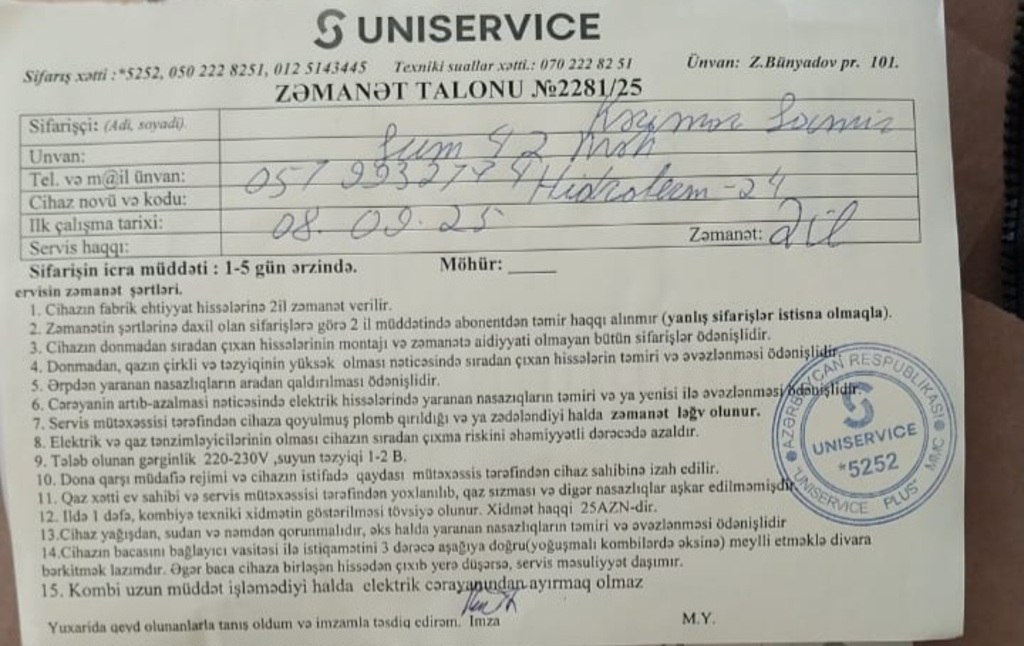 UNISERVICE
Sifariş xətti :*5252, 050 222 8251, 012 5143445 Texniki suallar xətti.: 070 222 82 51 Ünvan: Z.Bünyadov pr. 101.
ZƏMANƏT TALONU №2281/25
Sifarişçi: (Adi, soyadi).
Unvan: Sum 42 Məh
Tel. və m@il ünvan: 057
Cihaz novü və kodu: Hidroterm-24
Ilk çalışma tarixi: 08.09.25
Servis haqqı: Zəmanət: 2il
Sifarişin icra müddəti : 1-5 gün ərzində. Möhür: _____
ervisin zəmanət şərtləri.
1. Cihazın fabrik ehtiyyat hissələrinə 2il zəmanət verilir.
2. Zəmanətin şərtlərinə daxil olan sifarişlərə görə 2 il müddətində abonentdən təmir haqqı alınmır (yanlış sifarişlər istisna olmaqla).
3. Cihazın donmadan sıradan çıxan hissələrinin montajı və zəmanətə aidiyyati olmayan bütün sifarişlər ödənişlidir.
4. Donmadan, qazın çirkli və təzyiqinin yüksək olması nəticəsində sıradan çıxan hissələrin təmiri və əvəzlənməsi ödənişlidir.
5. Ərpdən yaranan nasazlıqların aradan qaldırılması ödənişlidir.
6. Cərəyanin artıb-azalması nəticəsində elektrik hissələrində yaranan nasazlıqların təmiri və ya yenisi ilə əvəzlənməsi ödənişlidir.
7. Servis mütəxəssisi tərəfindən cihaza qoyulmuş plomb qırıldığı və ya zədələndiyi halda zəmanət ləğv olunur.
8. Elektrik və qaz tənzimləyicilərinin olması cihazın sıradan çıxma riskini əhəmiyyətli dərəcədə azaldır.
9. Tələb olunan gərginlik 220-230V ,suyun təzyiqi 1-2 B.
10. Dona qarşı müdafiə rejimi və cihazın istifadə qaydası mütəxəssis tərəfindən cihaz sahibinə izah edilir.
11. Qaz xətti ev sahibi və servis mütəxəssisi tərəfindən yoxlanılıb, qaz sızması və digər nasazlıqlar aşkar edilməmişdir.
12. Ildə 1 dəfə, kombiyə texniki xidmətin göstərilməsi tövsiyə olunur. Xidmət haqqi 25AZN-dir.
13.Cihaz yağışdan, sudan və nəmdən qorunmalıdır, əks halda yaranan nasazlıqların təmiri və əvəzlənməsi ödənişlidir
14.Cihazın bacasını bağlayıcı vasitəsi ilə istiqamətini 3 dərəcə aşağıya doğru(yoğuşmalı kombilərdə əksinə) meylli etməklə divara
bərkitmək lazımdır. Əgər baca cihaza birləşən hissədən çıxıb yerə düşərsə, servis məsuliyyət daşımır.
15. Kombi uzun müddət işləmədiyi halda elektrik cərəyanından ayırmaq olmaz
Yuxarida qeyd olunanlarla tanış oldum və imzamla təsdiq edirəm. Imza M.Y.
AZƏRBAYCAN RESPUBLIKASI
UNISERVICE
*5252
"UNISERVICE PLUS" MMC